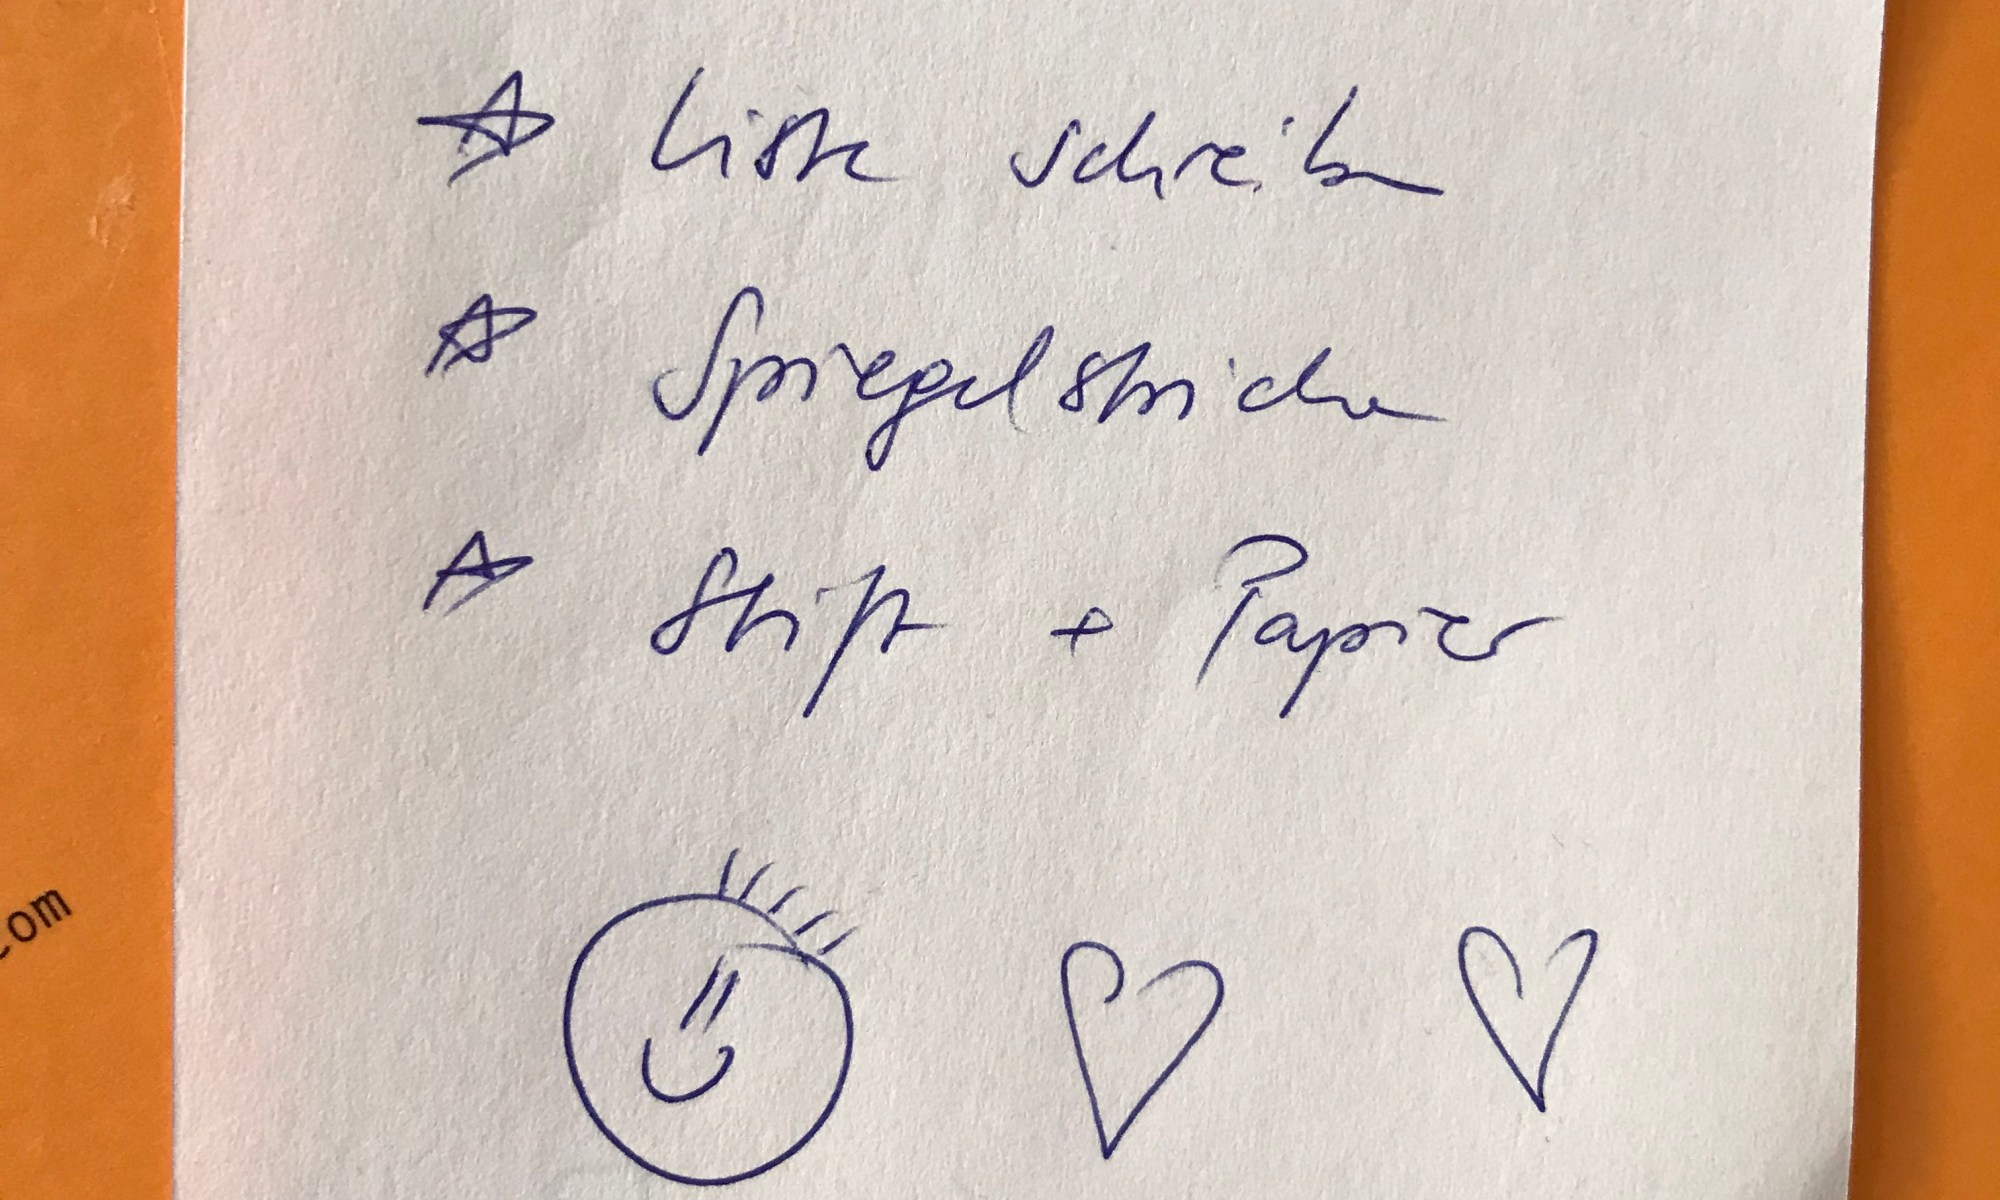 Liste schreiben
Spiegelstriche
Stift + Papier
com